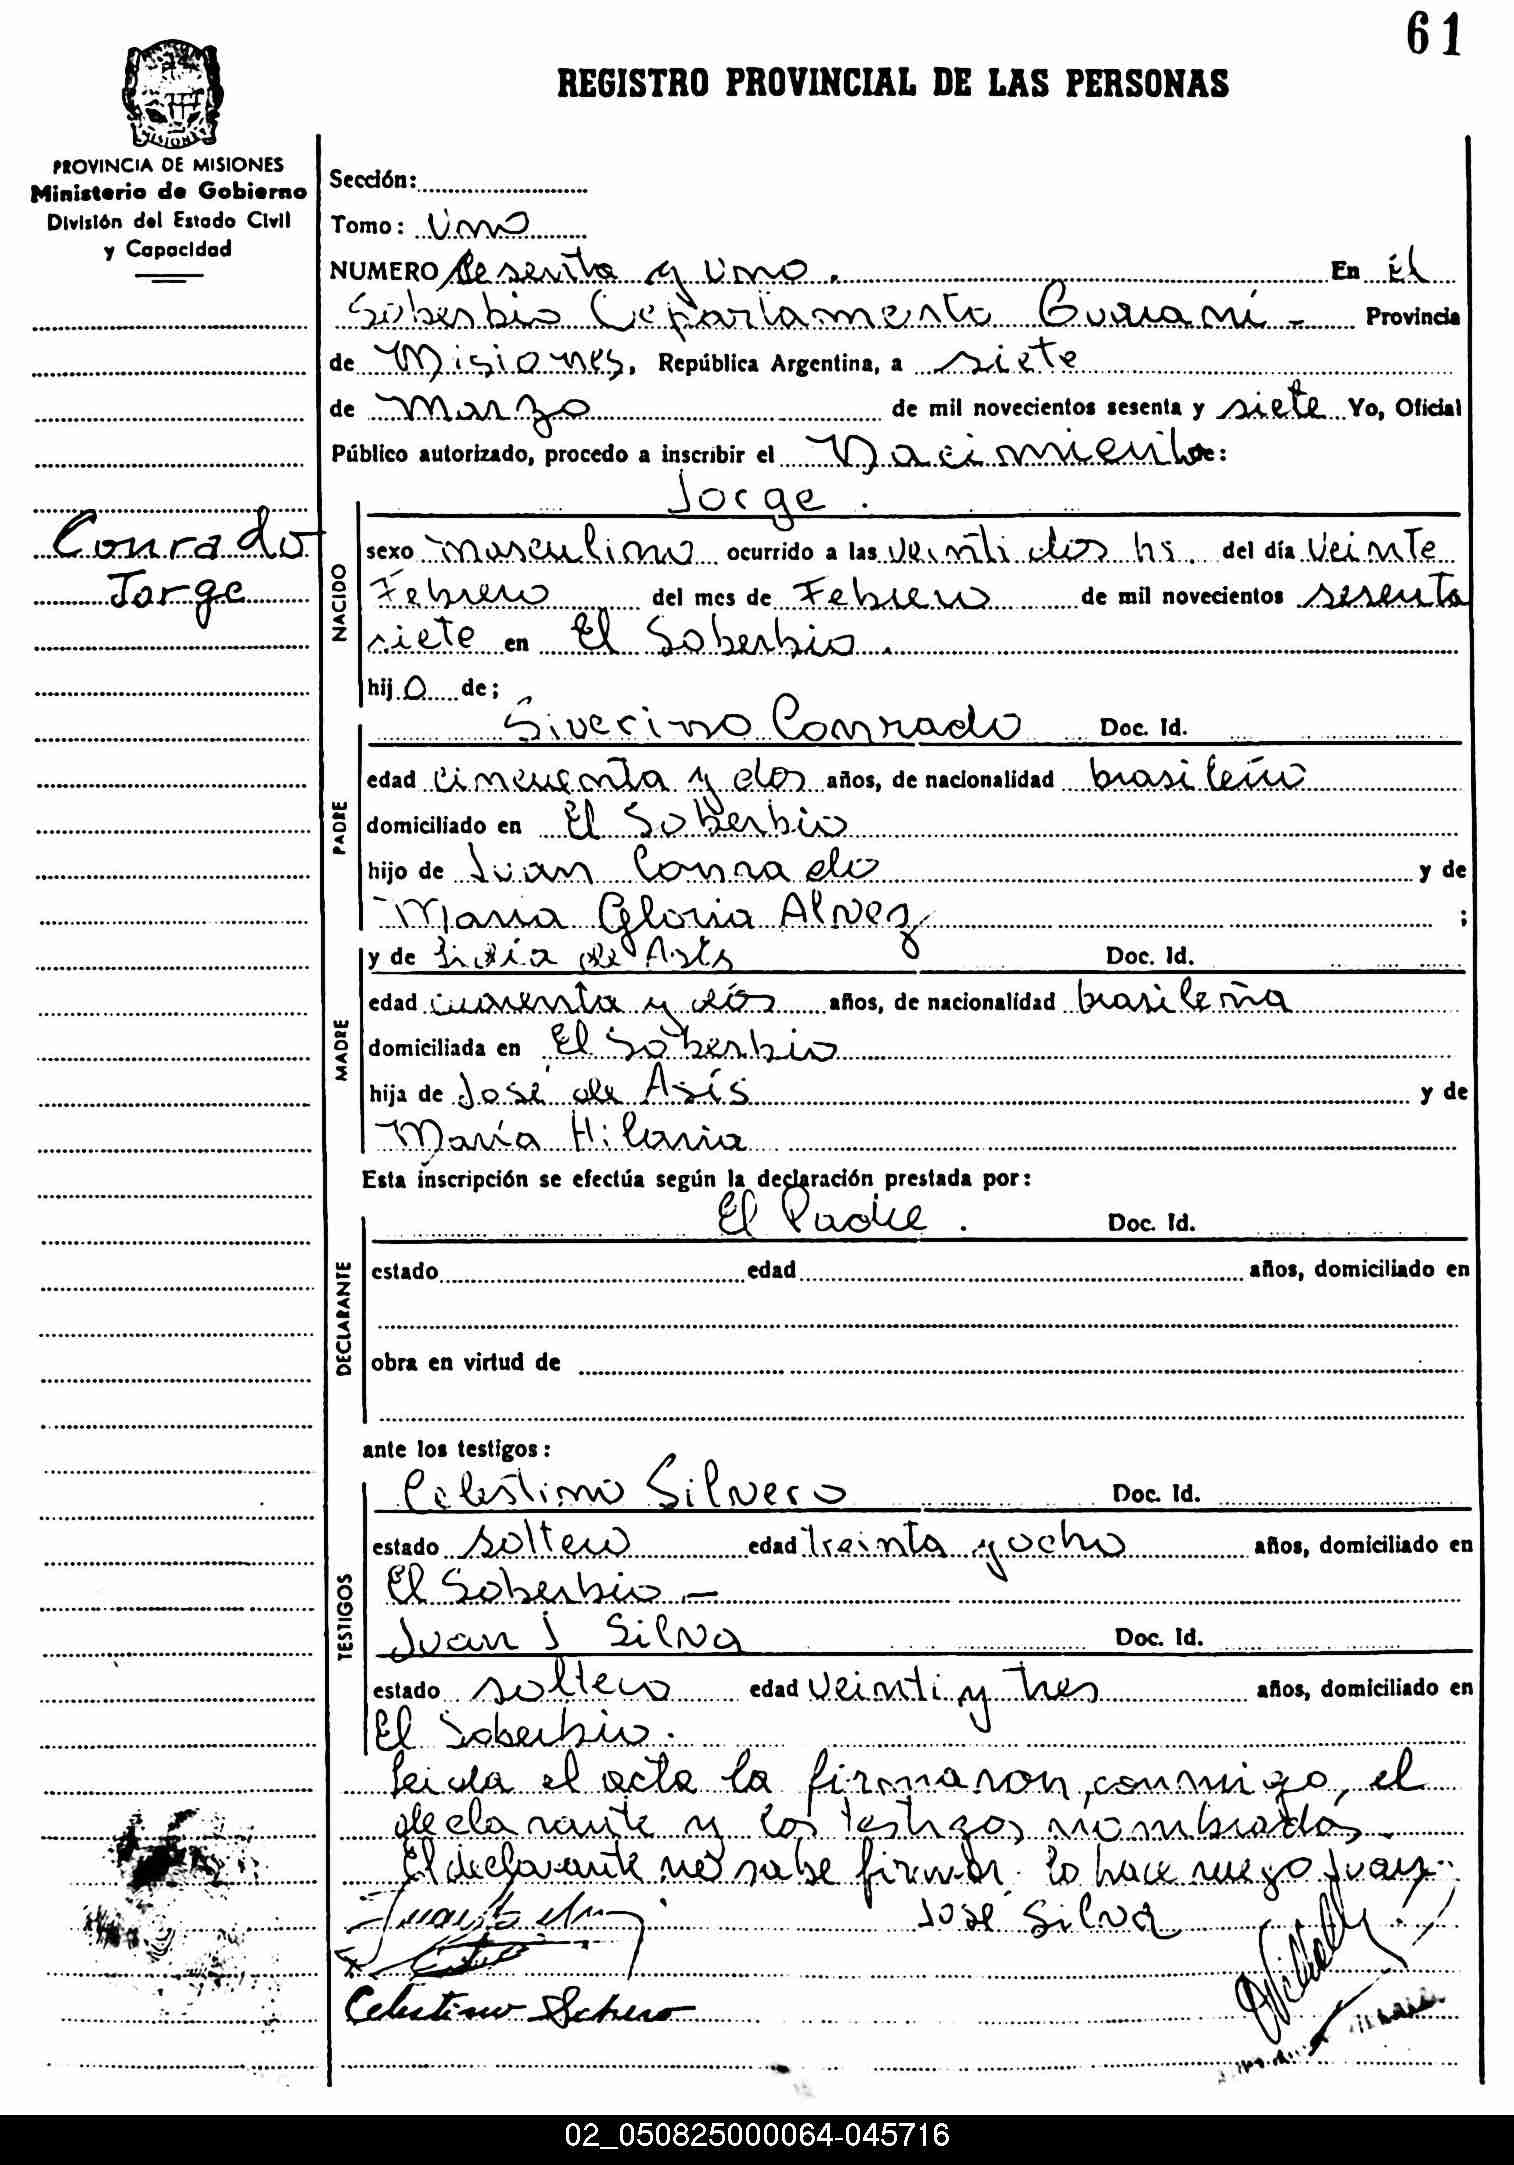 61
REGISTRO PROVINCIAL DE LAS PERSONAS
MISIONES
PROVINCIA DE MISIONES
Ministerio de Gobierno
División del Estado Civil
y Capacidad
Conrado
Jorge
Sección:
Tomo: Uno
NUMERO Sesenta y Uno. En El
Soberbio Departamento Guaraní - Provincia
de Misiones, República Argentina, a siete
de Marzo de mil novecientos sesenta y siete Yo, Oficial
Público autorizado, procedo a inscribir el Nacimiento de:
NACIDO
Jorge.
sexo masculino ocurrido a las veinti dos hs. del día Veinte
Febrero del mes de Febrero de mil novecientos sesenta
siete en El Soberbio.
hij o de;
PADRE
Siverino Conrado Doc. Id.
edad cincuenta y dos años, de nacionalidad brasileño
domiciliado en El Soberbio
hijo de Juan Conrado y de
Maria Gloria Alvez ;
MADRE
y de de Asís Doc. Id.
edad cuarenta y dos años, de nacionalidad brasileña
domiciliada en El Soberbio
hija de José de Asís y de
María Hilaria
Esta inscripción se efectúa según la declaración prestada por:
DECLARANTE
El Padre. Doc. Id.
estado edad años, domiciliado en
obra en virtud de
ante los testigos:
TESTIGOS
Celestino Silvero Doc. Id.
estado soltero edad treinta y ocho años, domiciliado en
El Soberbio -
Juan J Silva Doc. Id.
estado soltero edad Veinti y tres años, domiciliado en
El Soberbio.
Leida el acta la firmaron, conmigo, el
declarante y los testigos nombrados.
El declarante no sabe firmar lo hace ruego Juan
José Silva
Celestino
02_050825000064-045716